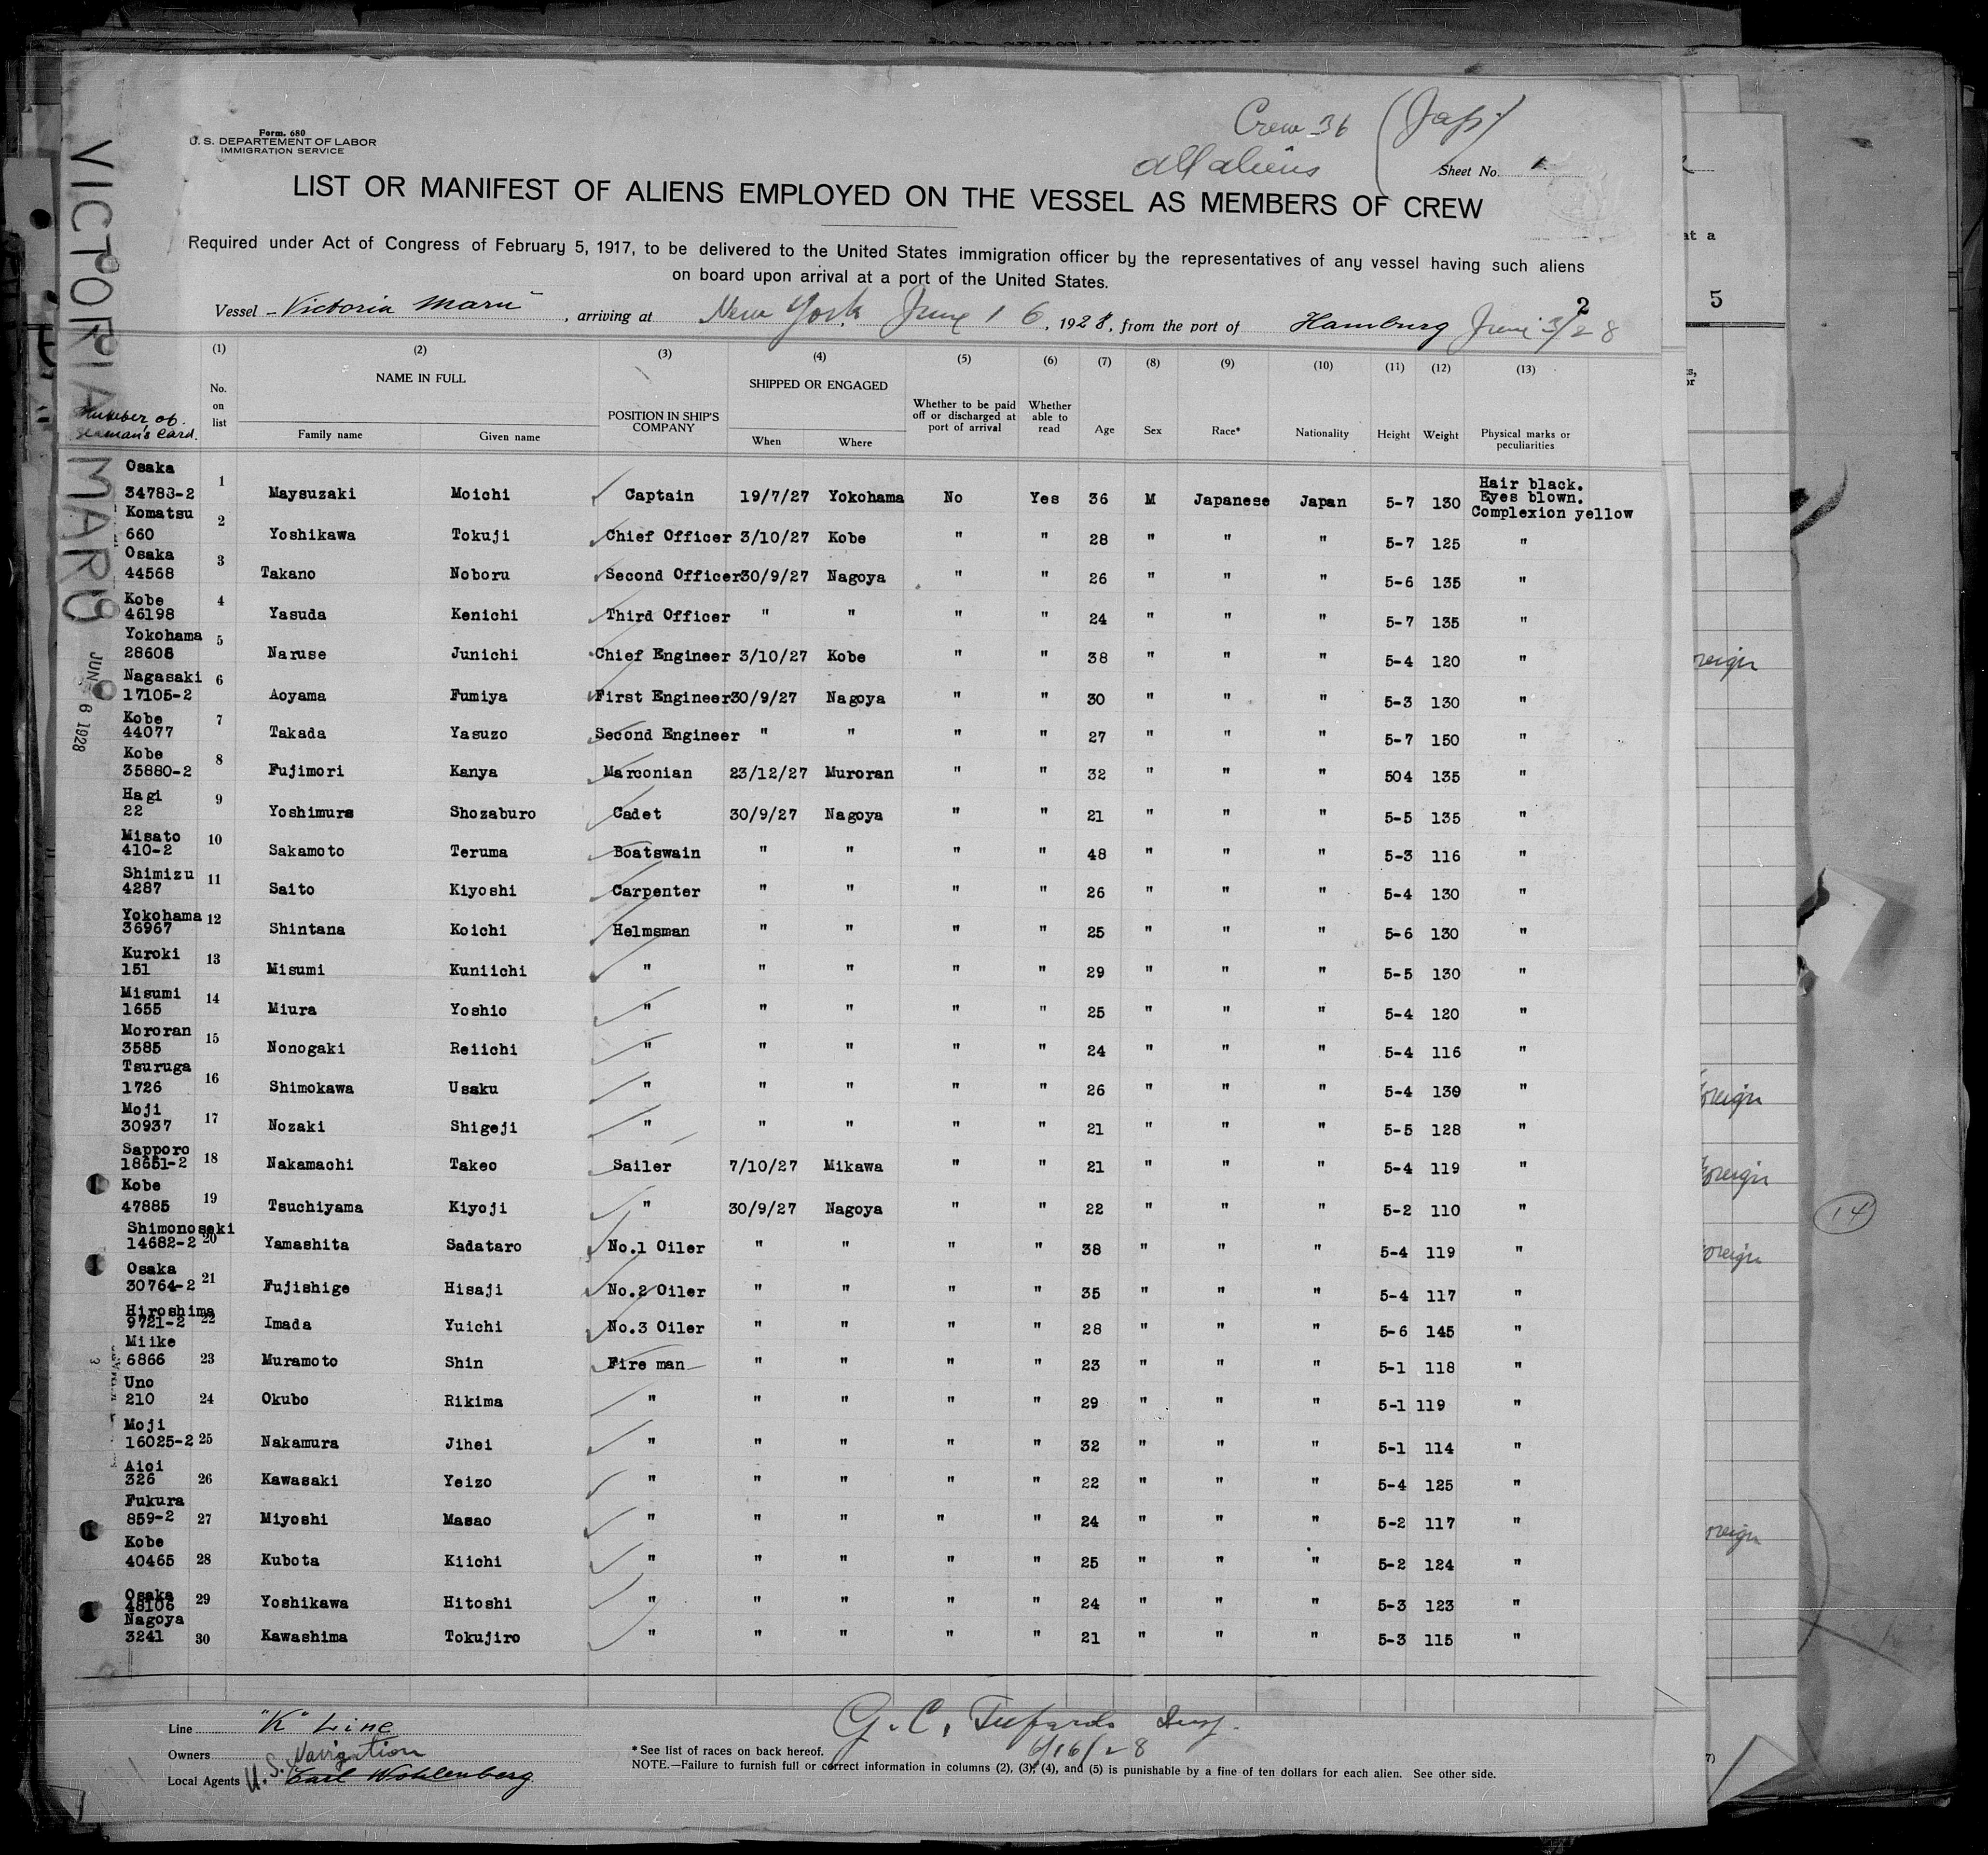 Crew 36 (Japs)
all aliens
Form. 680
U. S. DEPARTEMENT OF LABOR
IMMIGRATION SERVICE
Sheet No. 1
LIST OR MANIFEST OF ALIENS EMPLOYED ON THE VESSEL AS MEMBERS OF CREW
Required under Act of Congress of February 5, 1917, to be delivered to the United States immigration officer by the representatives of any vessel having such aliens
on board upon arrival at a port of the United States.
2
Vessel Victoria Maru, arriving at New York June 16, 1928, from the port of Hamburg June 3/28
VICTORIA MARU
JUN 16 1928
(1) (2) (3) (4) (5) (6) (7) (8) (9) (10) (11) (12) (13)
Number of Seaman's Card. No. on list NAME IN FULL Family name Given name POSITION IN SHIP'S COMPANY SHIPPED OR ENGAGED When Where Whether to be paid off or discharged at port of arrival Whether able to read Age Sex Race* Nationality Height Weight Physical marks or peculiarities
Osaka 34783-2 1 Maysuzaki Moichi Captain 19/7/27 Yokohama No Yes 36 M Japanese Japan 5-7 130 Hair black. Eyes blown. Complexion yellow
Komatsu 660 2 Yoshikawa Tokuji Chief Officer 3/10/27 Kobe " " 28 " " " 5-7 125 "
Osaka 44568 3 Takano Noboru Second Officer 30/9/27 Nagoya " " 26 " " " 5-6 135 "
Kobe 46198 4 Yasuda Kenichi Third Officer " " " " 24 " " " 5-7 135 "
Yokohama 28608 5 Naruse Junichi Chief Engineer 3/10/27 Kobe " " 38 " " " 5-4 120 "
Nagasaki 17105-2 6 Aoyama Fumiya First Engineer 30/9/27 Nagoya " " 30 " " " 5-3 130 "
Kobe 44077 7 Takada Yasuzo Second Engineer " " " " 27 " " " 5-7 150 "
Kobe 35880-2 8 Fujimori Kanya Marconian 23/12/27 Muroran " " 32 " " " 504 135 "
Hagi 22 9 Yoshimura Shozaburo Cadet 30/9/27 Nagoya " " 21 " " " 5-5 135 "
Misato 410-2 10 Sakamoto Teruma Boatswain " " " " 48 " " " 5-3 116 "
Shimizu 4287 11 Saito Kiyoshi Carpenter " " " " 26 " " " 5-4 130 "
Yokohama 36967 12 Shintana Koichi Helmsman " " " " 25 " " " 5-6 130 "
Kuroki 151 13 Misumi Kuniichi " " " " " 29 " " " 5-5 130 "
Misumi 1655 14 Miura Yoshio " " " " " 25 " " " 5-4 120 "
Mororan 3585 15 Nonogaki Reiichi " " " " " 24 " " " 5-4 116 "
Tsuruga 1726 16 Shimokawa Usaku " " " " " 26 " " " 5-4 130 "
Moji 30937 17 Nozaki Shigeji " " " " " 21 " " " 5-5 128 "
Sapporo 18651-2 18 Nakamachi Takeo Sailer 7/10/27 Mikawa " " 21 " " " 5-4 119 "
Kobe 47885 19 Tsuchiyama Kiyoji " 30/9/27 Nagoya " " 22 " " " 5-2 110 "
Shimonoseki 14682-2 20 Yamashita Sadataro No.1 Oiler " " " " 38 " " " 5-4 119 "
Osaka 30764-2 21 Fujishige Hisaji No.2 Oiler " " " " 35 " " " 5-4 117 "
Hiroshima 9721-2 22 Imada Yuichi No.3 Oiler " " " " 28 " " " 5-6 145 "
Miike 6866 23 Muramoto Shin Fire man " " " " 23 " " " 5-1 118 "
Uno 210 24 Okubo Rikima " " " " " 29 " " " 5-1 119 "
Moji 16025-2 25 Nakamura Jihei " " " " " 32 " " " 5-1 114 "
Aioi 326 26 Kawasaki Yeizo " " " " " 22 " " " 5-4 125 "
Fukura 859-2 27 Miyoshi Masao " " " " " 24 " " " 5-2 117 "
Kobe 40465 28 Kubota Kiichi " " " " " 25 " " " 5-2 124 "
Osaka 48106 29 Yoshikawa Hitoshi " " " " " 24 " " " 5-3 123 "
Nagoya 3241 30 Kawashima Tokujiro " " " " " 21 " " " 5-3 115 "
Line "K" Line
Owners
Local Agents U.S. Navigation Earl Wohlenberg.
G. C. Insp.
6/16/28
*See list of races on back hereof.
NOTE.—Failure to furnish full or correct information in columns (2), (3), (4), and (5) is punishable by a fine of ten dollars for each alien. See other side.
at a
5
14